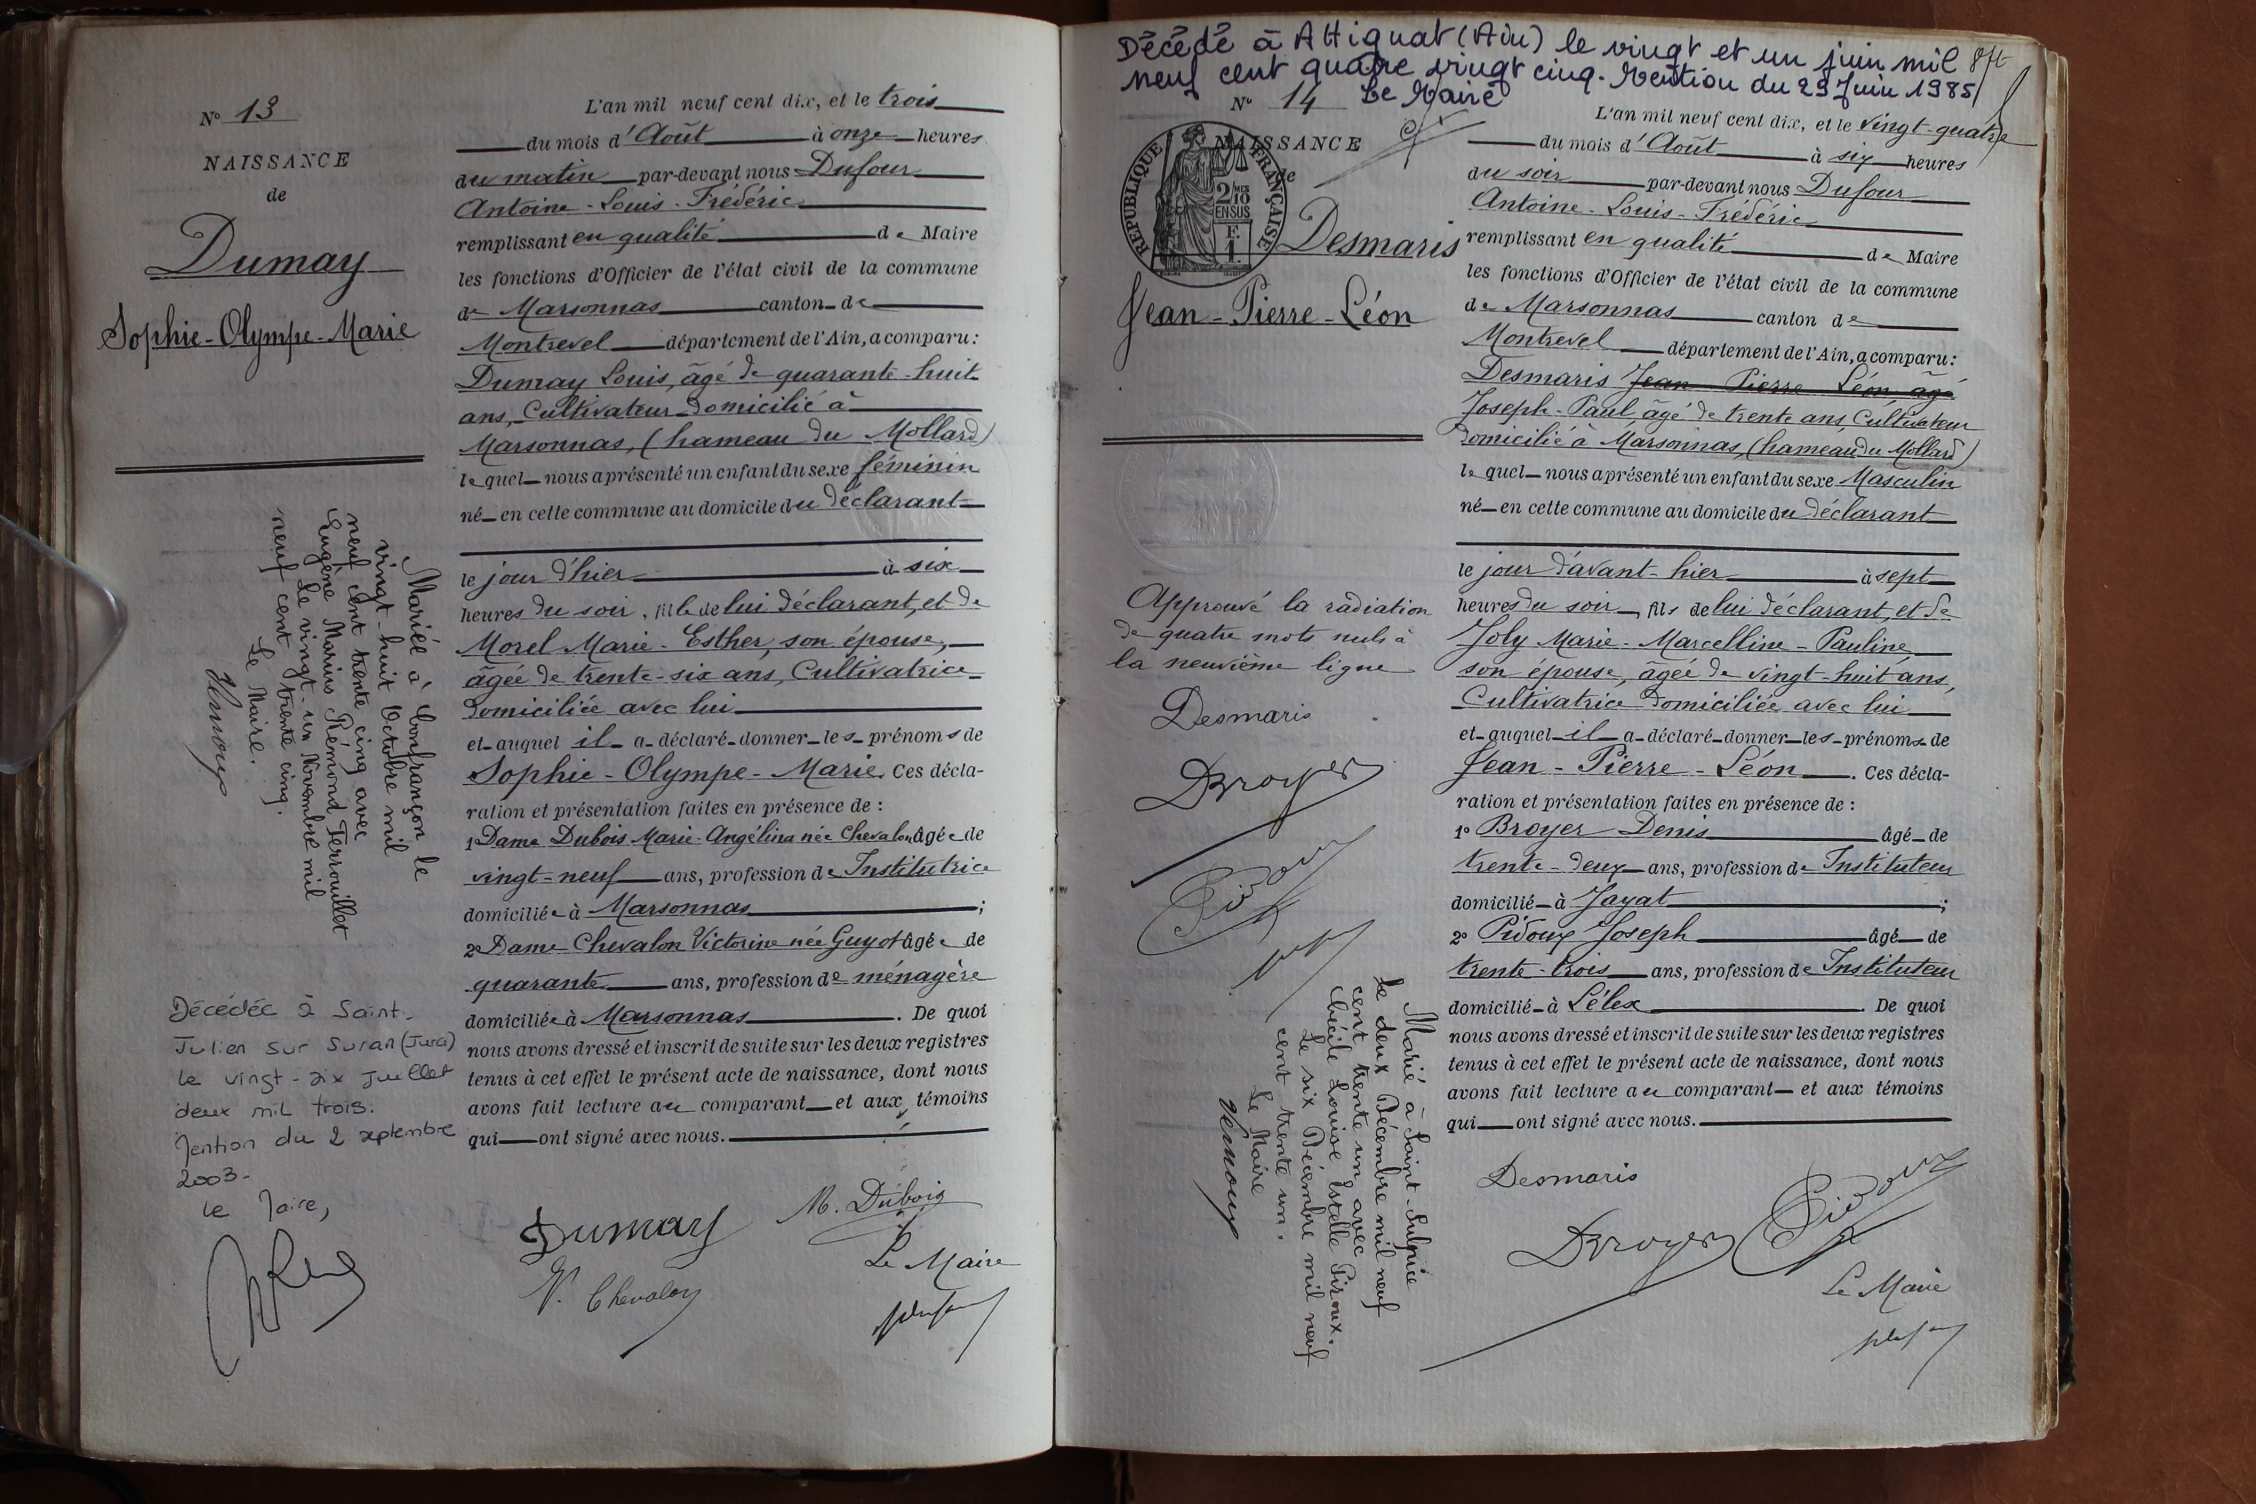 N° 13
NAISSANCE
de
Dumay
Sophie-Olympe-Marie
Mariée à Confrançon le
vingt-huit Octobre mil
neuf cent trente cinq avec
Eugène Marius Rémond Terrouillet
Le vingt-un Novembre mil
neuf cent trente cinq.
Le Maire.
Décédée à Saint-
Julien sur Suran (Jura)
le vingt-six Juillet
deux mil trois.
Mention du 2 septembre
2003-
Le Maire,
L'an mil neuf cent dix, et le trois
du mois d'Août à onze heures
du matin par-devant nous Dufour
Antoine-Louis-Frédéric
remplissant en qualité de Maire
les fonctions d'Officier de l'état civil de la commune
de Marsonnas canton de
Montrevel département de l'Ain, a comparu:
Dumay Louis, âgé de quarante-huit
ans, Cultivateur domicilié à
Marsonnas, (hameau du Mollard)
lequel nous a présenté un enfant du sexe féminin
né en cette commune au domicile du déclarant
le jour d'hier à six
heures du soir, fille de lui déclarant, et de
Morel Marie-Esther, son épouse,
âgée de trente-six ans, Cultivatrice
domiciliée avec lui
et auquel il a déclaré donner les prénoms de
Sophie-Olympe-Marie. Ces décla-
ration et présentation faites en présence de :
1° Dame Dubois Marie-Angélina née Chevalon, âgée de
vingt-neuf ans, profession de Institutrice
domiciliée à Marsonnas ;
2° Dame Chevalon Victorine née Guyot âgée de
quarante ans, profession de ménagère
domiciliée à Marsonnas . De quoi
nous avons dressé et inscrit de suite sur les deux registres
tenus à cet effet le présent acte de naissance, dont nous
avons fait lecture au comparant et aux témoins
qui ont signé avec nous.
Dumay
M. Dubois
V. Chevalon
Le Maire
Décédé à Attignat (Ain) le vingt et un juin mil
neuf cent quatre vingt cinq. Mention du 29 Juin 1985
Le Maire
N° 14
NAISSANCE
de
REPUBLIQUE FRANÇAISE
2/10 MES
EN SUS
F.
1.
Desmaris
Jean-Pierre-Léon
Approuvé la radiation
de quatre mots nuls à
la neuvième ligne
Desmaris
DBroyer
Pidoux
Marié à Saint-Sulpice
le deux Décembre mil neuf
cent trente un avec
Cécile Louise Estelle Piroux.
Le six Décembre mil neuf
cent trente un.
Le Maire
L'an mil neuf cent dix, et le vingt-quatre
du mois d'Août à six heures
du soir par-devant nous Dufour
Antoine-Louis-Frédéric
remplissant en qualité de Maire
les fonctions d'Officier de l'état civil de la commune
de Marsonnas canton de
Montrevel département de l'Ain, a comparu:
Desmaris Jean Pierre Léon âgé
Joseph-Paul, âgé de trente ans, Cultivateur
domicilié à Marsonnas, (hameau du Mollard)
lequel nous a présenté un enfant du sexe Masculin
né en cette commune au domicile du déclarant
le jour d'avant-hier à sept
heures du soir, fils de lui déclarant, et de
Joly Marie-Marcelline-Pauline
son épouse, âgée de vingt-huit ans,
Cultivatrice domiciliée avec lui
et auquel il a déclaré donner les prénoms de
Jean-Pierre-Léon . Ces décla-
ration et présentation faites en présence de :
1° Broyer Denis âgé de
trente-deux ans, profession de Instituteur
domicilié à Jayat ;
2° Pidoux Joseph âgé de
trente-trois ans, profession de Instituteur
domicilié à Lélex . De quoi
nous avons dressé et inscrit de suite sur les deux registres
tenus à cet effet le présent acte de naissance, dont nous
avons fait lecture au comparant et aux témoins
qui ont signé avec nous.
Desmaris
DBroyer
Pidoux
Le Maire